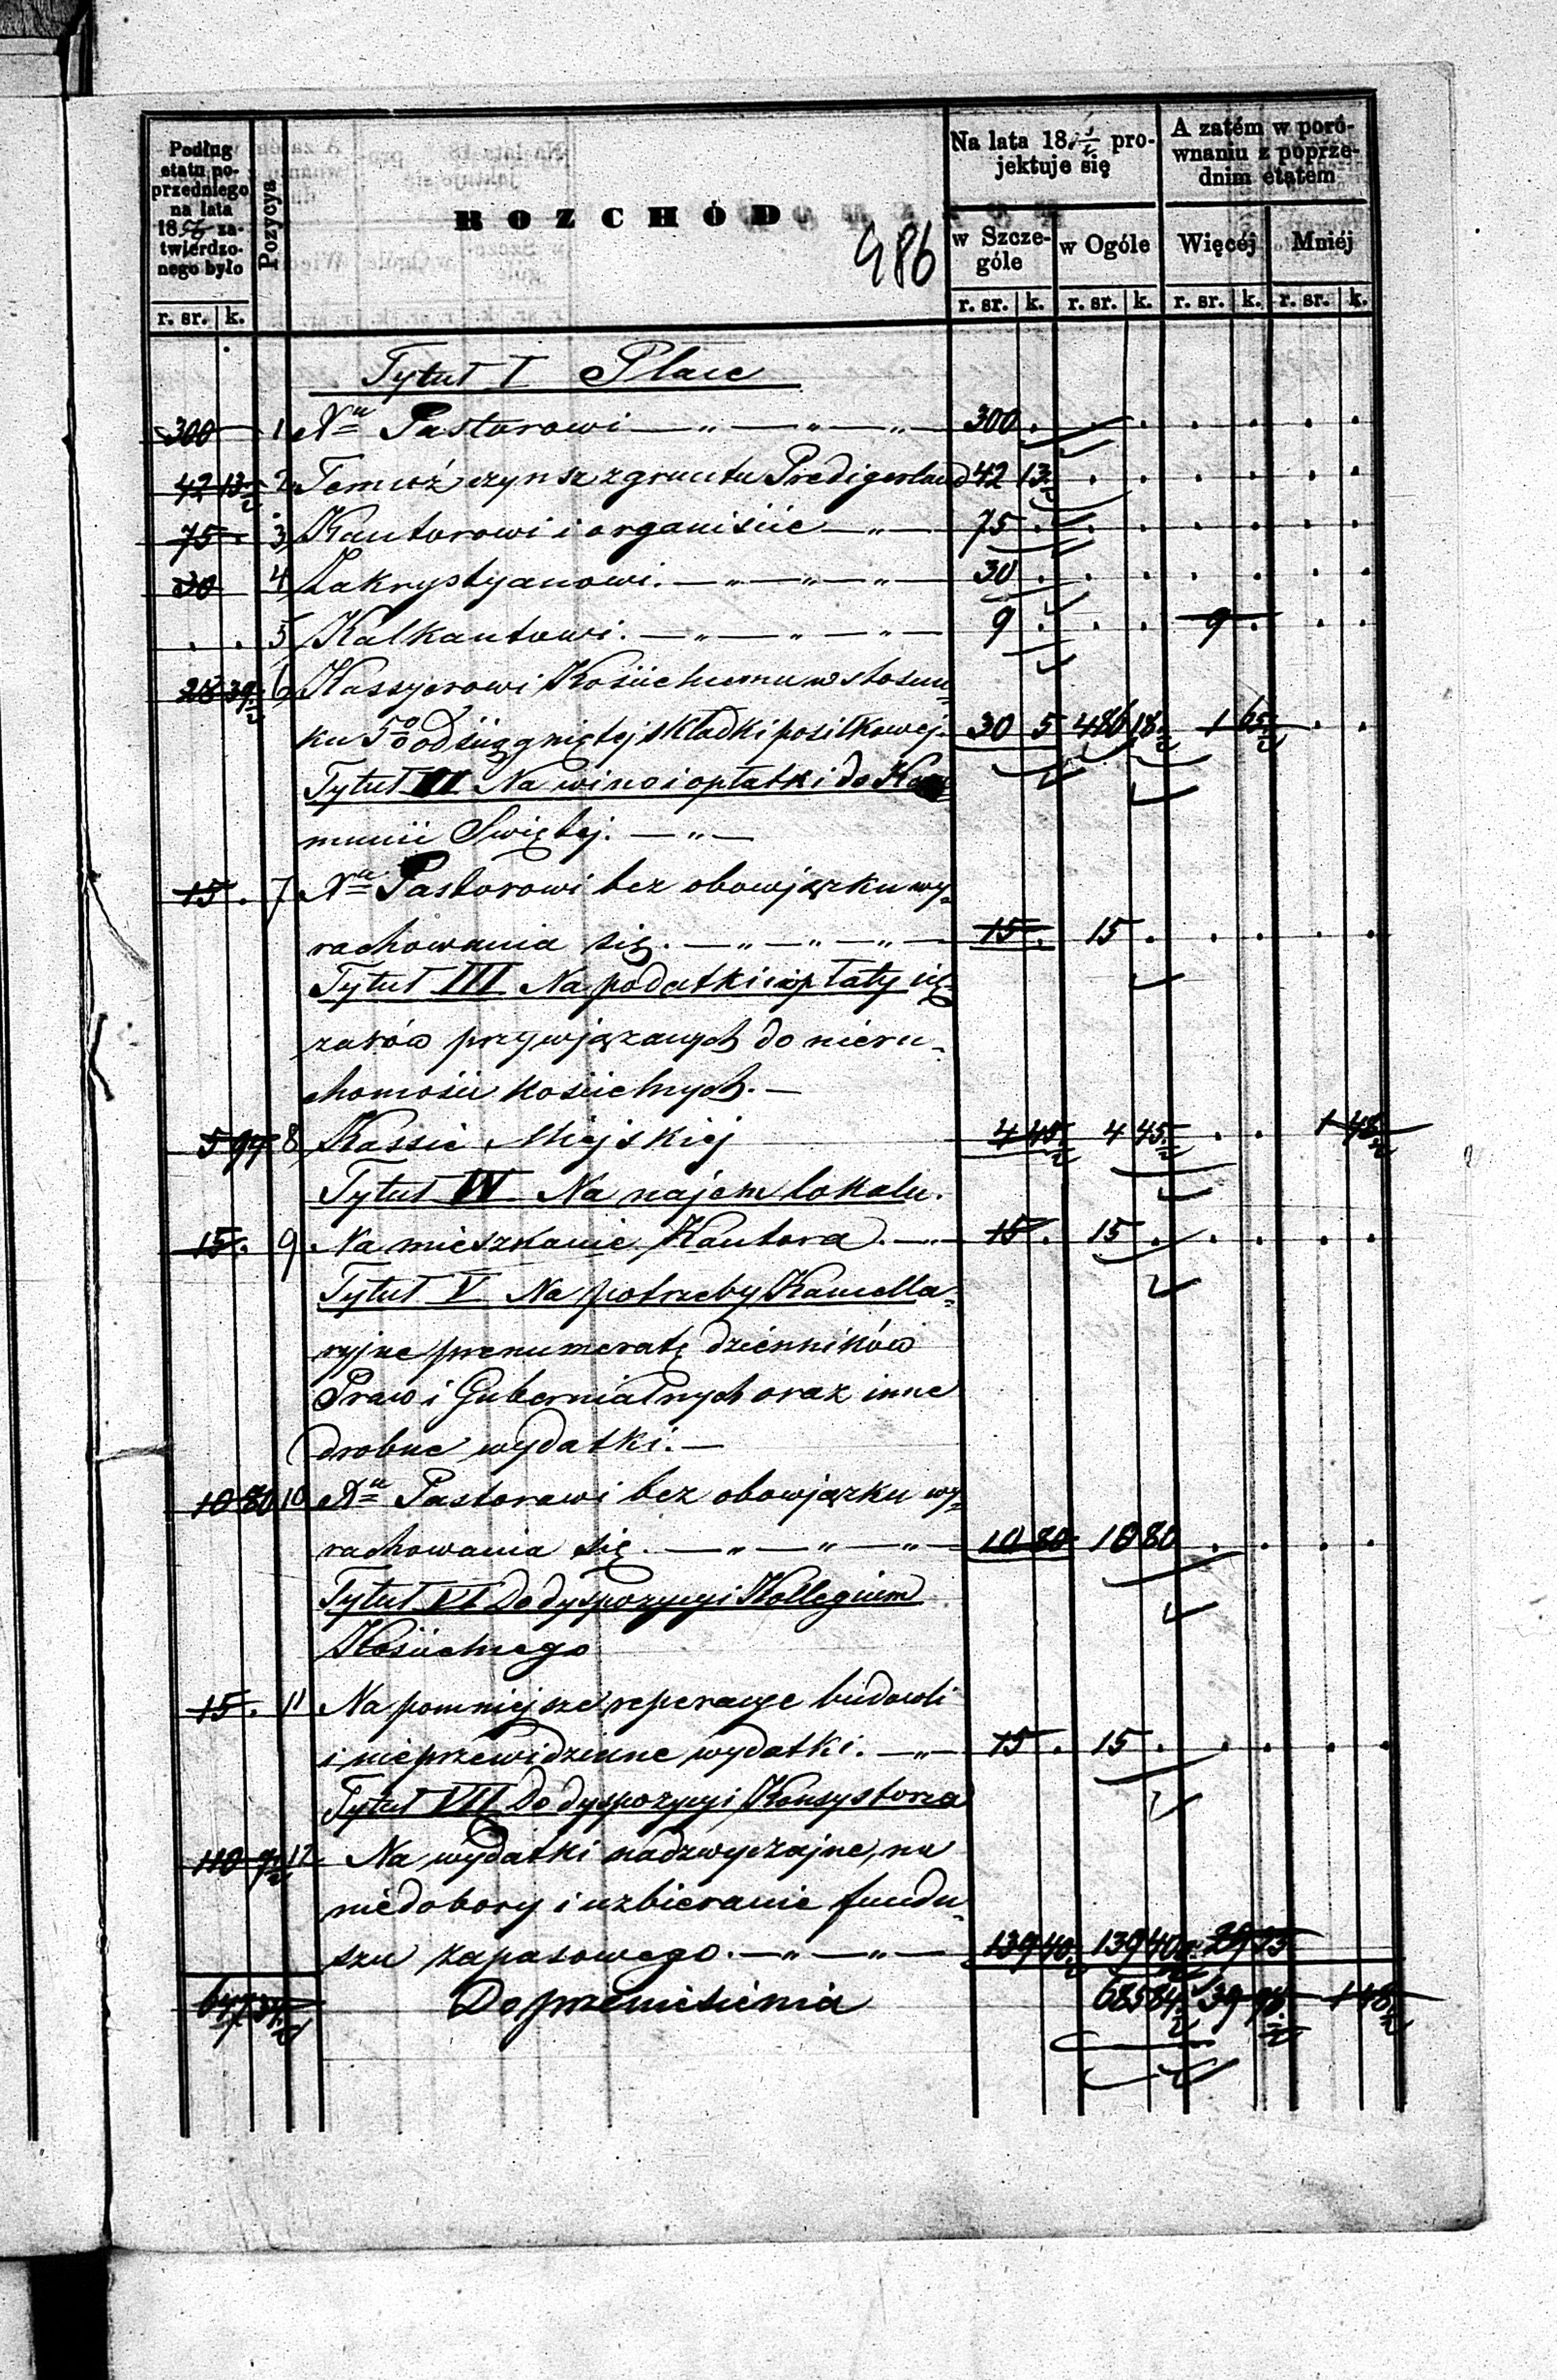 Podług etatu poprzedniego na lata 1856 zatwierdzonego było | Pozycya | ROZCHÓD | Na lata 18 projektuje się | A zatém w porównaniu z poprzednim etatem
486
w Szczególe | w Ogóle | Więcéj | Mniéj
r. sr. | k. | r. sr. | k. | r. sr. | k. | r. sr. | k. | r. sr. | k.
Tytuł I Płace
300 1 Xu Pastorowi — " — " — " — 300 .
42 13½ 2 Temuż czynsz z gruntu Predigerland 42 13½
75 . 3 Kantorowi i organiście — " — 75 .
30 4 Zakrystyanowi. — " — " — " — 30 .
. . 5 Kalkantowi. — " — " — " — 9 . . . 9 .
28 39½ 6 Kassyerowi Kościelnemu w stosun=
ku 5% od ściągniętej składki posiłkowej. 30 5 486 18½ 1 65½ . .
Tytuł II Na wino i opłatki do Kom=
munii Swiętej. — " —
15 . 7 Xu Pastorowi bez obowjązku wy=
rachowania się. — " — " — " — 15 . 15 . . . . .
Tytuł III Na podatki i opłaty cię=
żarów przywjązanych do nieru=
chomości kościelnych. —
5 94 8 Kassie Miejskiej 4 45½ 4 45½ . . 1 48½
Tytuł IV Na najem lokalu.
15 . 9 Na mieszkanie Kantora. — " 15 . 15 . . . . .
Tytuł V Na potrzeby Kancella=
ryjne prenumeratę dzienników
Praw i Gubernialnych oraz inne
drobne wydatki. —
10 80 10 Xu Pastorowi bez obowjązku wy=
rachowania się. — " — " — " — 10 80 10 80 . . . .
Tytuł VI Do dyspozycyi Kollegium
Kościelnego
15 . 11 Na pomniejsze reperacye budowli
i nieprzewidziane wydatki. — " — 15 . 15 . . . . .
Tytuł VII Do dyspozycyi Konsystorza
110 12 Na wydatki nadzwyczajne, na
niedobory i uzbieranie fundu=
szu zapasowego. — " — " — 139 40½ 139 40½ 29 33
Do przeniesienia 685 84½ 39 98½ 1 48½